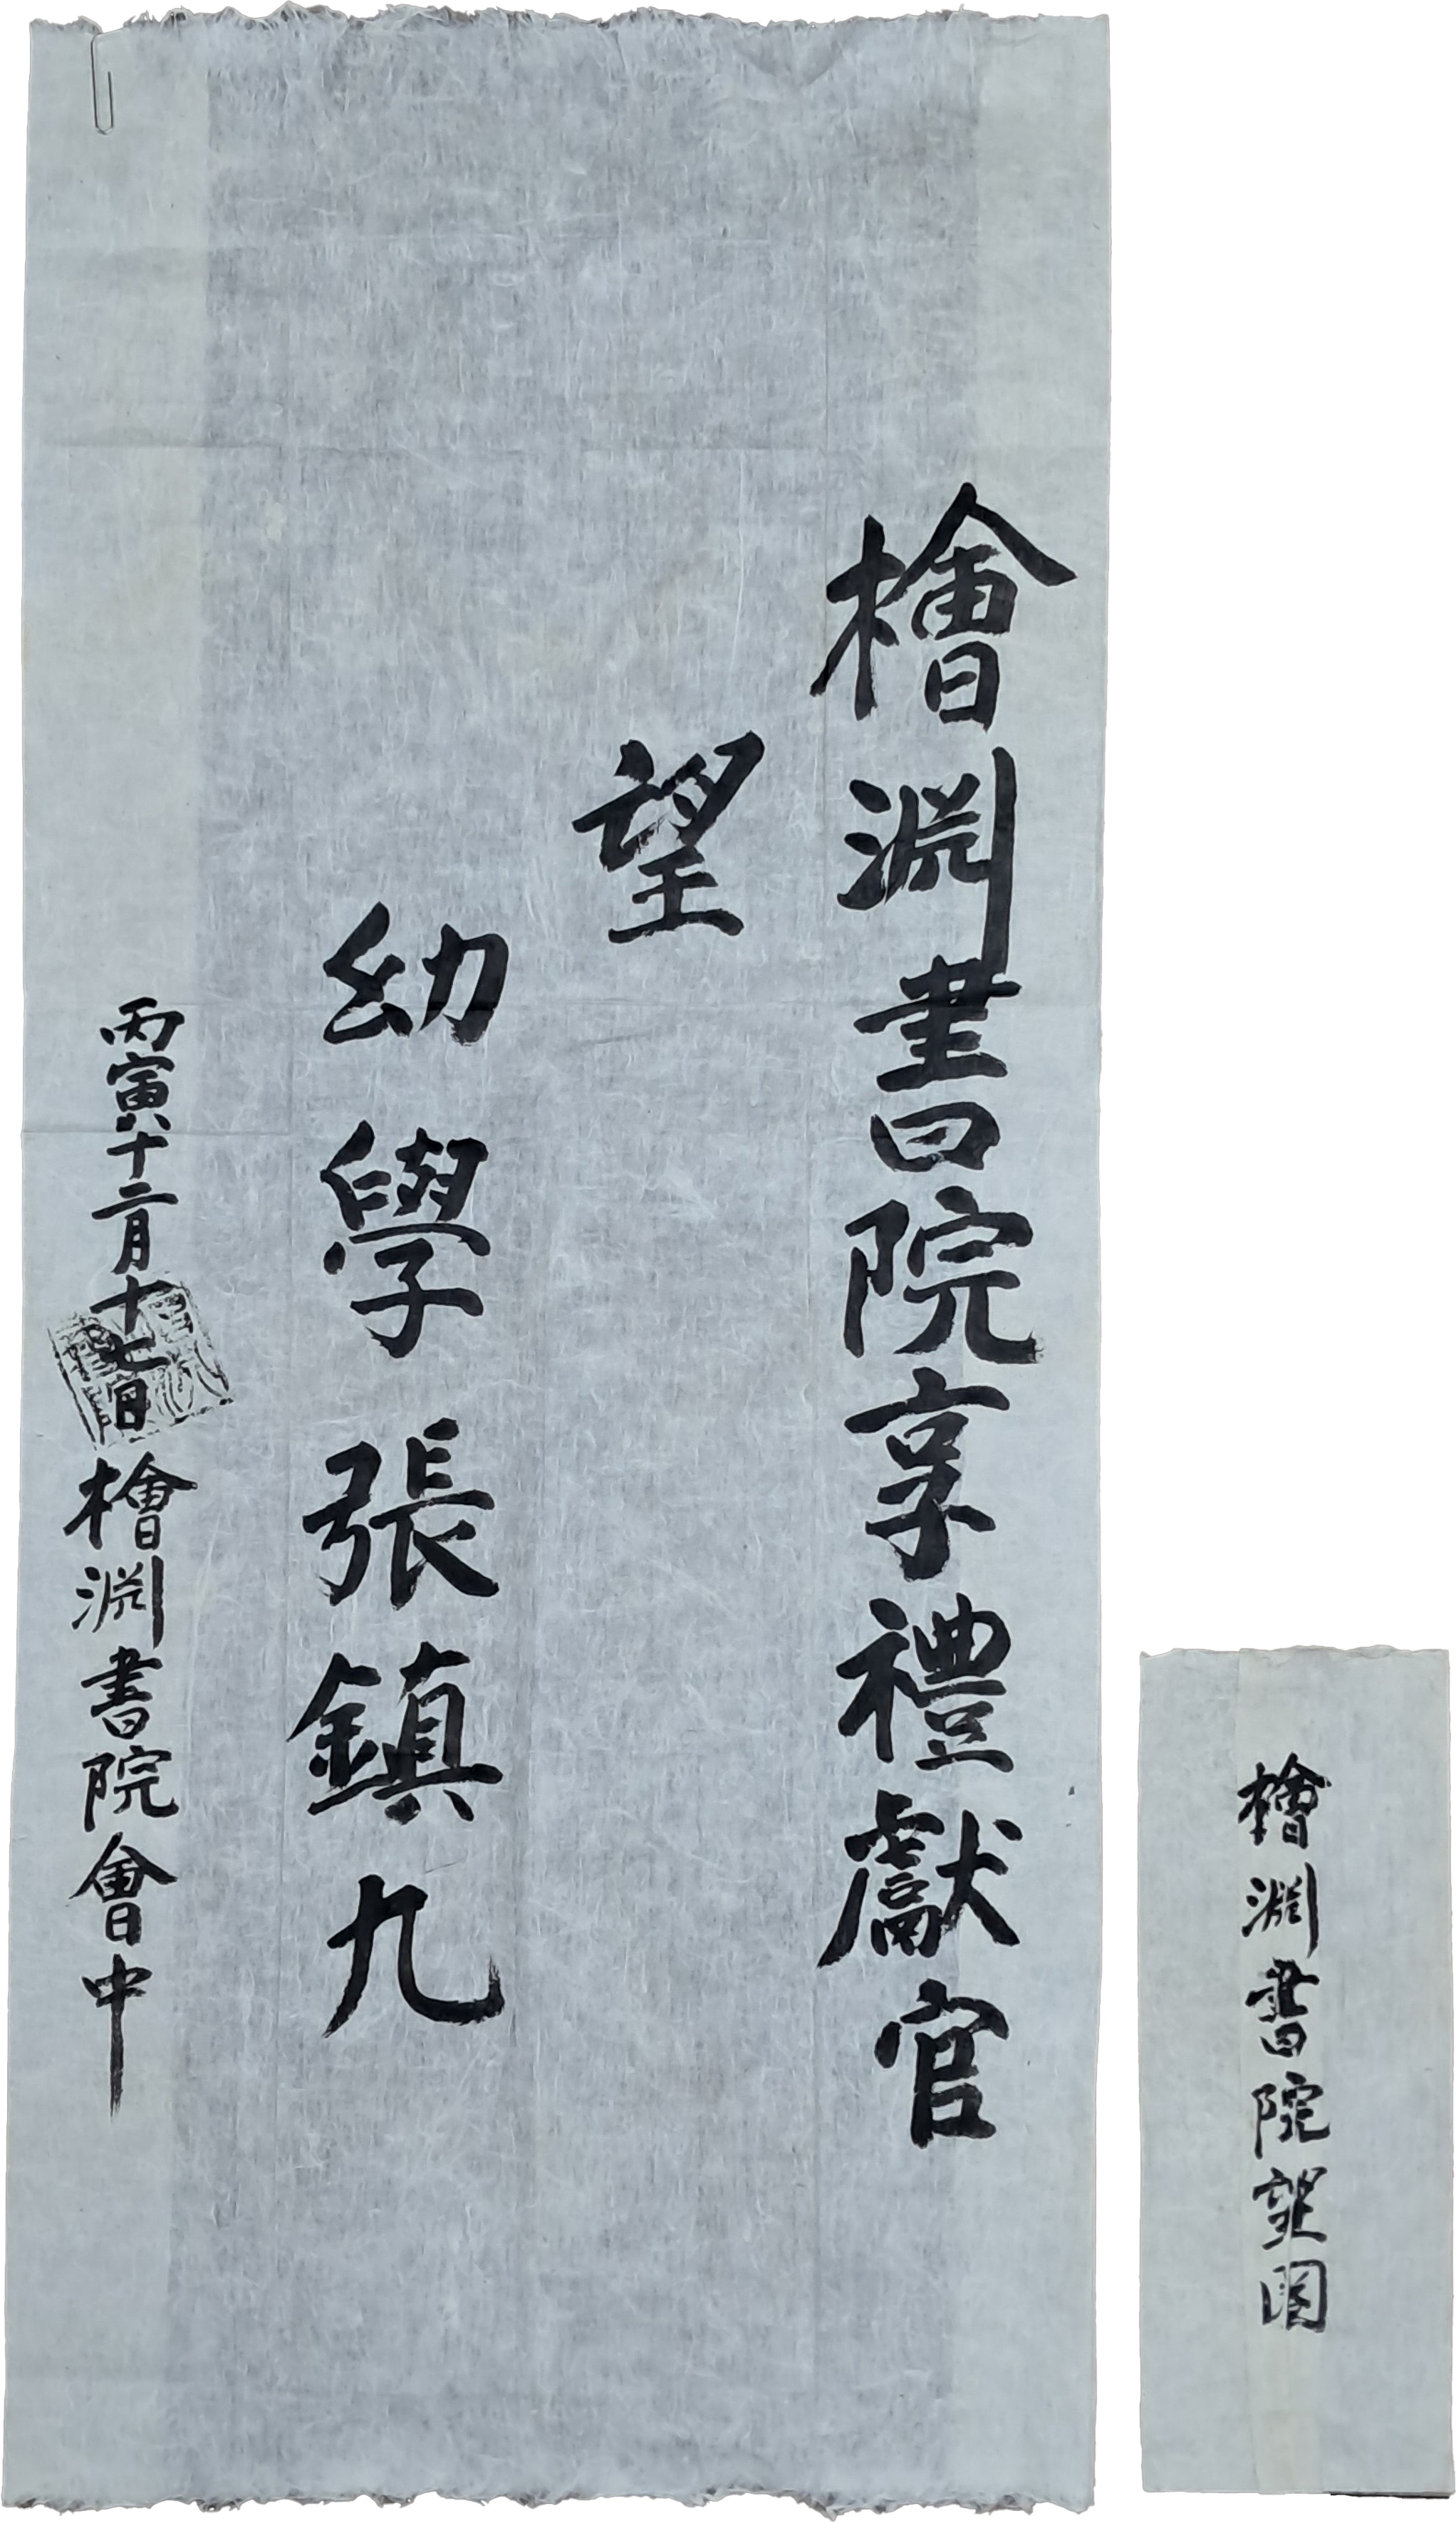 檜淵書院享禮獻官
望
幼學張鎮九
丙寅十二月十七日 檜淵書院會中
檜淵書院望